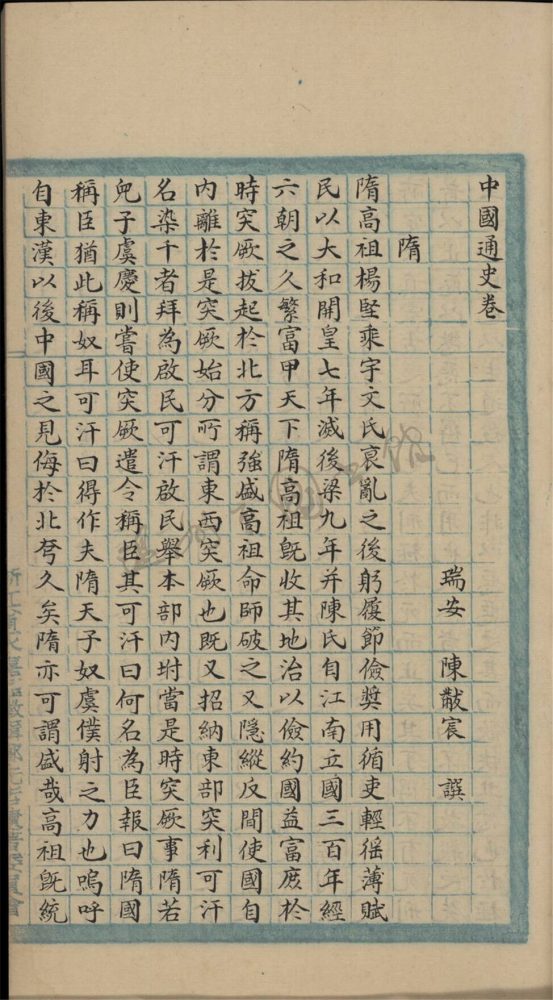 中國通史卷
瑞安 陳黻宸 譔
隋
隋高祖楊堅乘宇文氏哀亂之後躬履節儉奬用循吏輕徭薄賦
民以大和開皇七年滅後梁九年并陳氏自江南立國三百年經
六朝之久繁富甲天下隋高祖既收其地治以儉約國益富庶於
時突厥拔起於北方稱強盛高祖命師破之又隱縱反間使國自
内離於是突厥始分所謂東西突厥也既又招納東部突利可汗
名染干者拜為啟民可汗啟民舉本部内坿當是時突厥事隋若
兒子虞慶則嘗使突厥遣令稱臣其可汗曰何名為臣報曰隋國
稱臣猶此稱奴耳可汗曰得作夫隋天子奴虞僕射之力也嗚呼
自東漢以後中國之見侮於北久矣隋亦可謂盛哉高祖既統